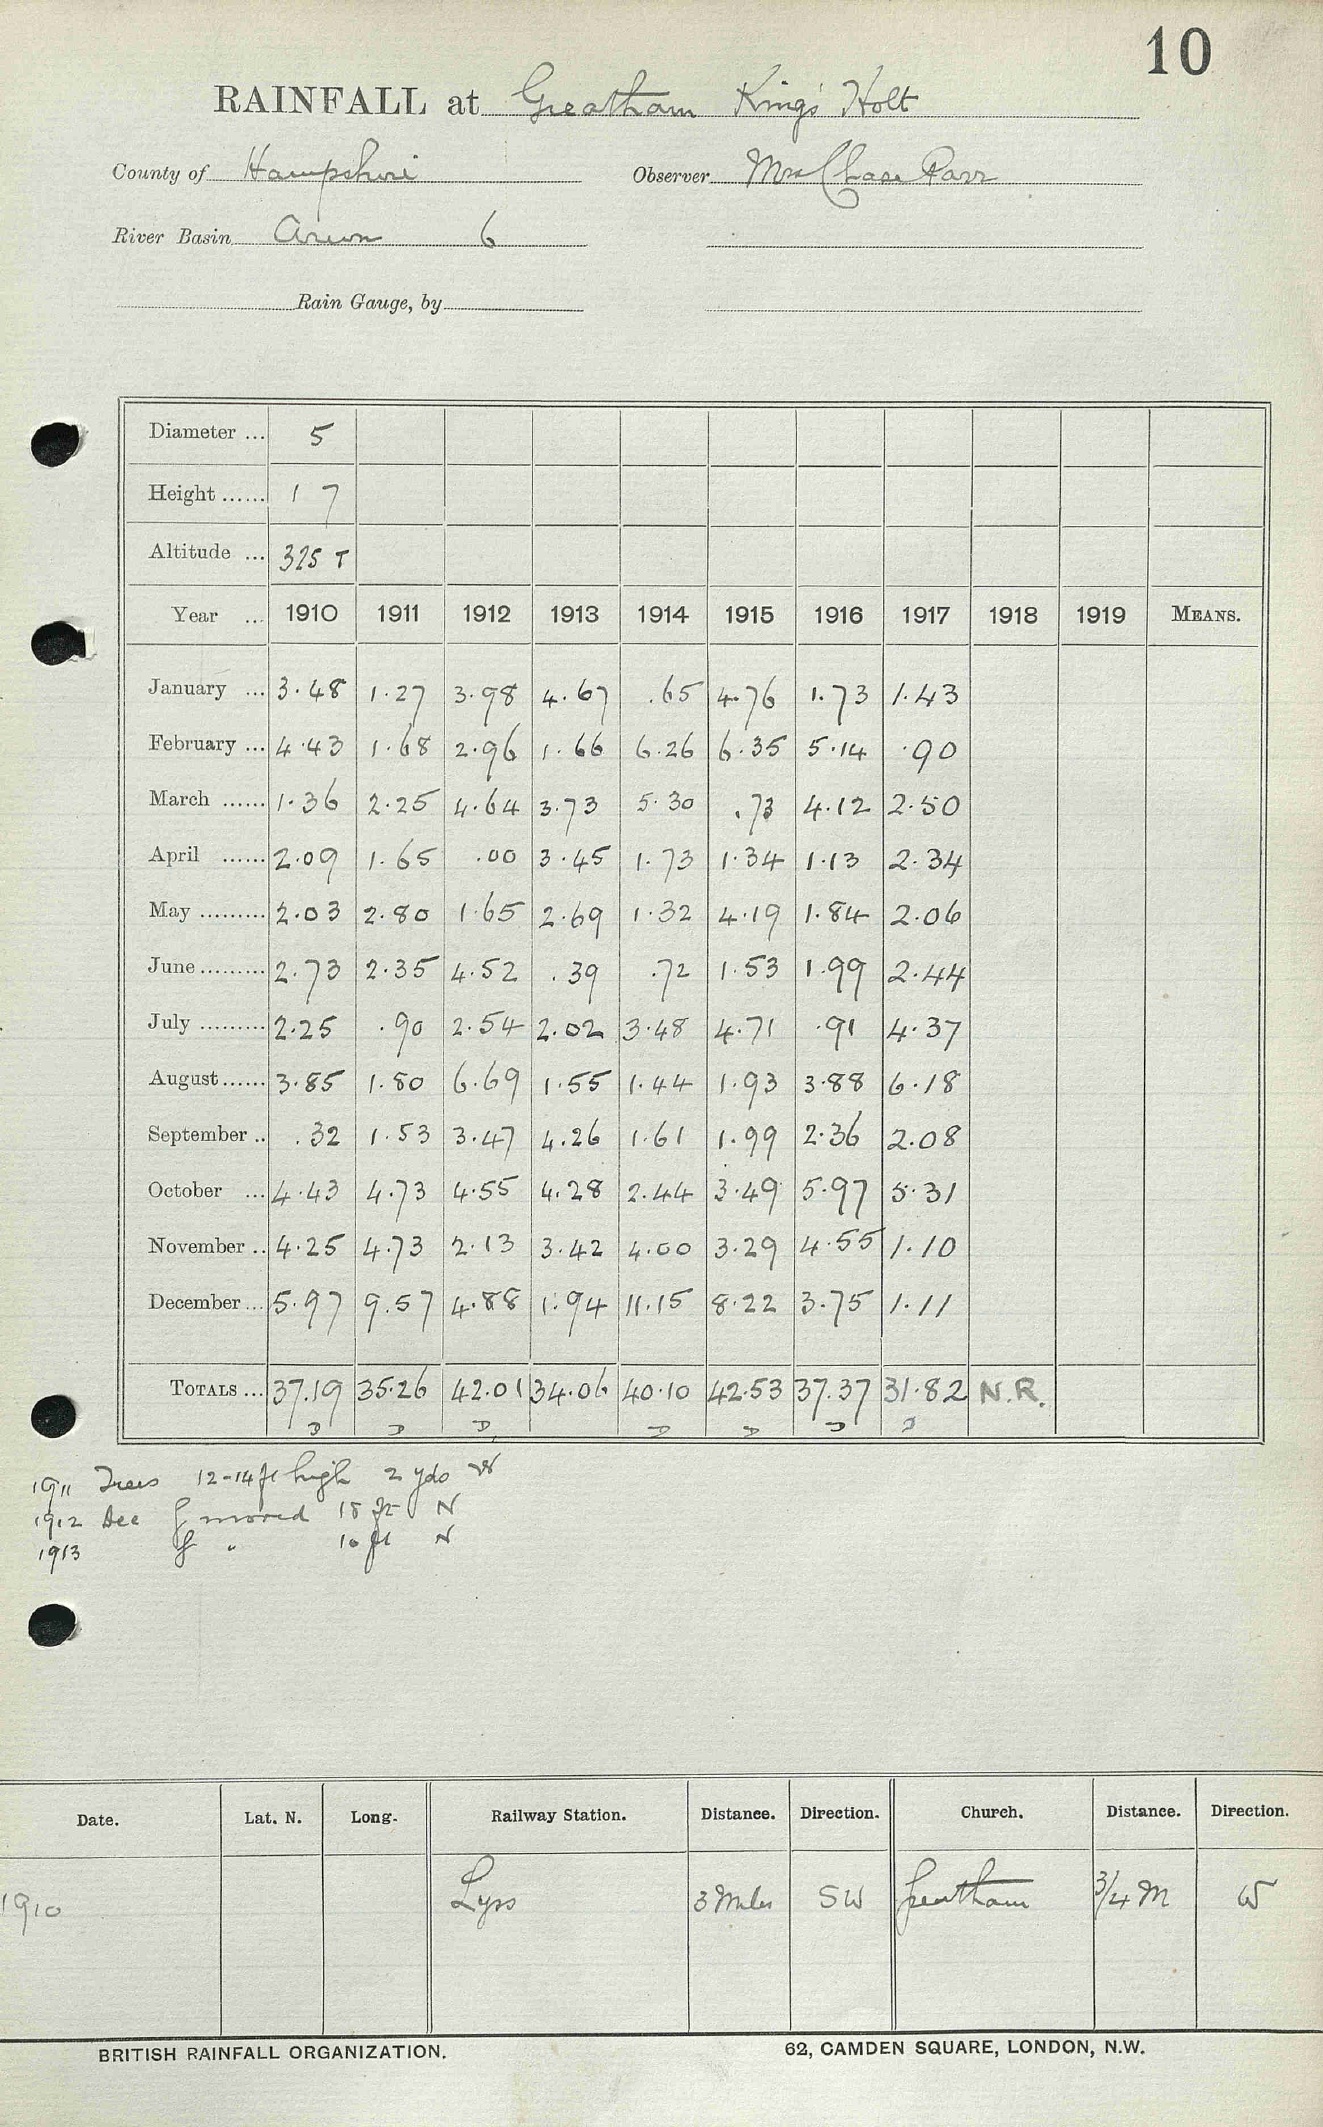 10
RAINFALL at Greatham King's Holt
County of Hampshire Observer Mrs Chase Parr
River Basin Arun 6
Rain Gauge, by
Diameter ... 5
Height ...... 1 7
Altitude ... 325 T
Year ... 1910 1911 1912 1913 1914 1915 1916 1917 1918 1919 MEANS.
January ... 3.48 1.27 3.98 4.67 .65 4.76 1.73 1.43
February ... 4.43 1.68 2.96 1.66 6.26 6.35 5.14 .90
March ...... 1.36 2.25 4.64 3.73 5.30 .73 4.12 2.50
April ...... 2.09 1.65 .00 3.45 1.73 1.34 1.13 2.34
May ......... 2.03 2.80 1.65 2.69 1.32 4.19 1.84 2.06
June ......... 2.73 2.35 4.52 .39 .72 1.53 1.99 2.44
July ......... 2.25 .90 2.54 2.02 3.48 4.71 .91 4.37
August ...... 3.85 1.80 6.69 1.55 1.44 1.93 3.88 6.18
September .. .32 1.53 3.47 4.26 1.61 1.99 2.36 2.08
October ... 4.43 4.73 4.55 4.28 2.44 3.49 5.97 5.31
November .. 4.25 4.73 2.13 3.42 4.00 3.29 4.55 1.10
December ... 5.97 9.57 4.88 1.94 11.15 8.22 3.75 1.11
TOTALS ... 37.19 35.26 42.01 34.06 40.10 42.53 37.37 31.82 N.R.
D D D D D D D
1911 Trees 12-14 ft high 2 yds W
1912 Dec G moved 18 ft N
1913 G " 10 ft N
Date. Lat. N. Long. Railway Station. Distance. Direction. Church. Distance. Direction.
1910 Lyss 3 Miles SW Greatham 3/4 M W
BRITISH RAINFALL ORGANIZATION. 62, CAMDEN SQUARE, LONDON, N.W.